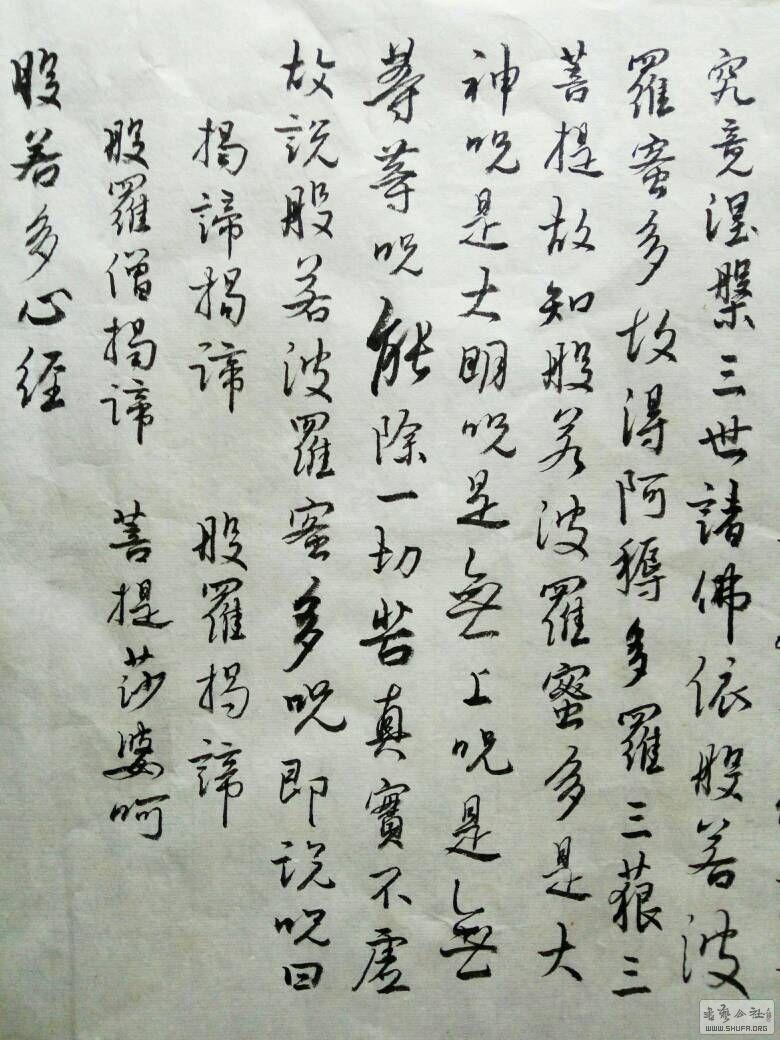 究竟涅槃三世諸佛依般若波
羅蜜多故得阿耨多羅三藐三
菩提故知般若波羅蜜多是大
神呪是大明呪是無上呪是無
等等呪能除一切苦真實不虛
故說般若波羅蜜多呪即說呪曰
揭諦揭諦 般羅揭諦
般羅僧揭諦 菩提莎婆呵
般若多心經
WWW.SHUFA.ORG